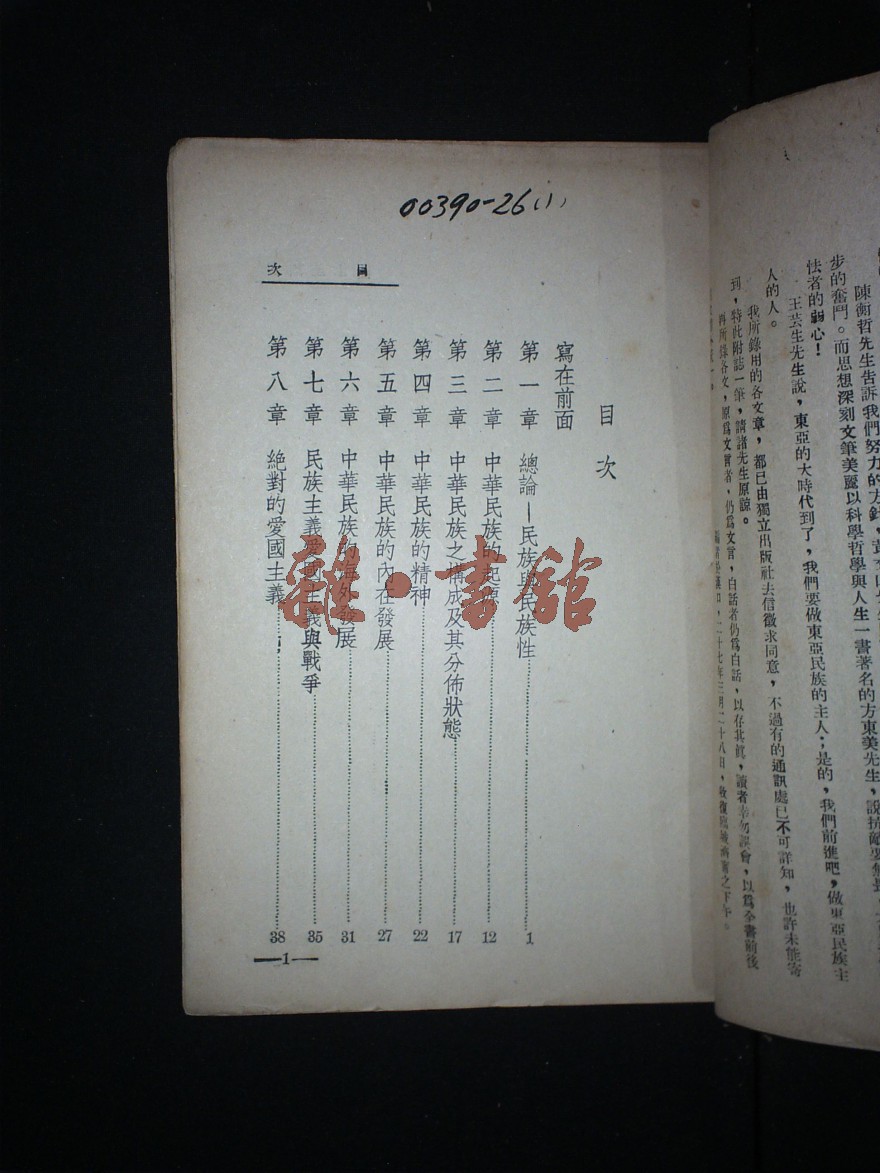 陳衡哲先生告訴我們努力的方針，
步的奮鬥。而思想深刻文筆美麗以科學哲學與人生一書著名的方東美先生，說抗敵要無畏
怯者的弱心！
王芸生先生說，東亞的大時代到了，我們要做東亞民族的主人；是的，我們前進吧，做東亞民族主
人的人。
我所錄用的各文章，都已由獨立出版社去信徵求同意，不過有的通訊處已不可詳知，也許未能寄
到，特此附誌一筆，請諸先生原諒。
再所錄各文，原爲文言者，仍爲文言，白話者仍爲白話，以存其眞，讀者幸勿誤會，以爲全書前後
二十七年三月二十八日，
00390-26(1)
目次
目次
寫在前面
第一章 總論—民族與民族性 1
第二章 中華民族的起源 12
第三章 中華民族之構成及其分佈狀態 17
第四章 中華民族的精神 22
第五章 中華民族的內在發展 27
第六章 中華民族的海外發展 31
第七章 民族主義愛國主義與戰爭 35
第八章 絕對的愛國主義 38
—1—
雜·書館